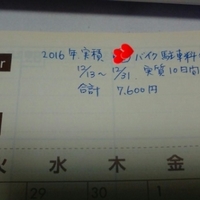 2016年実積 バイク駐車料
12/13〜12/31 実質10日間
合計 7,600円
火 水 木 金
29 30 1